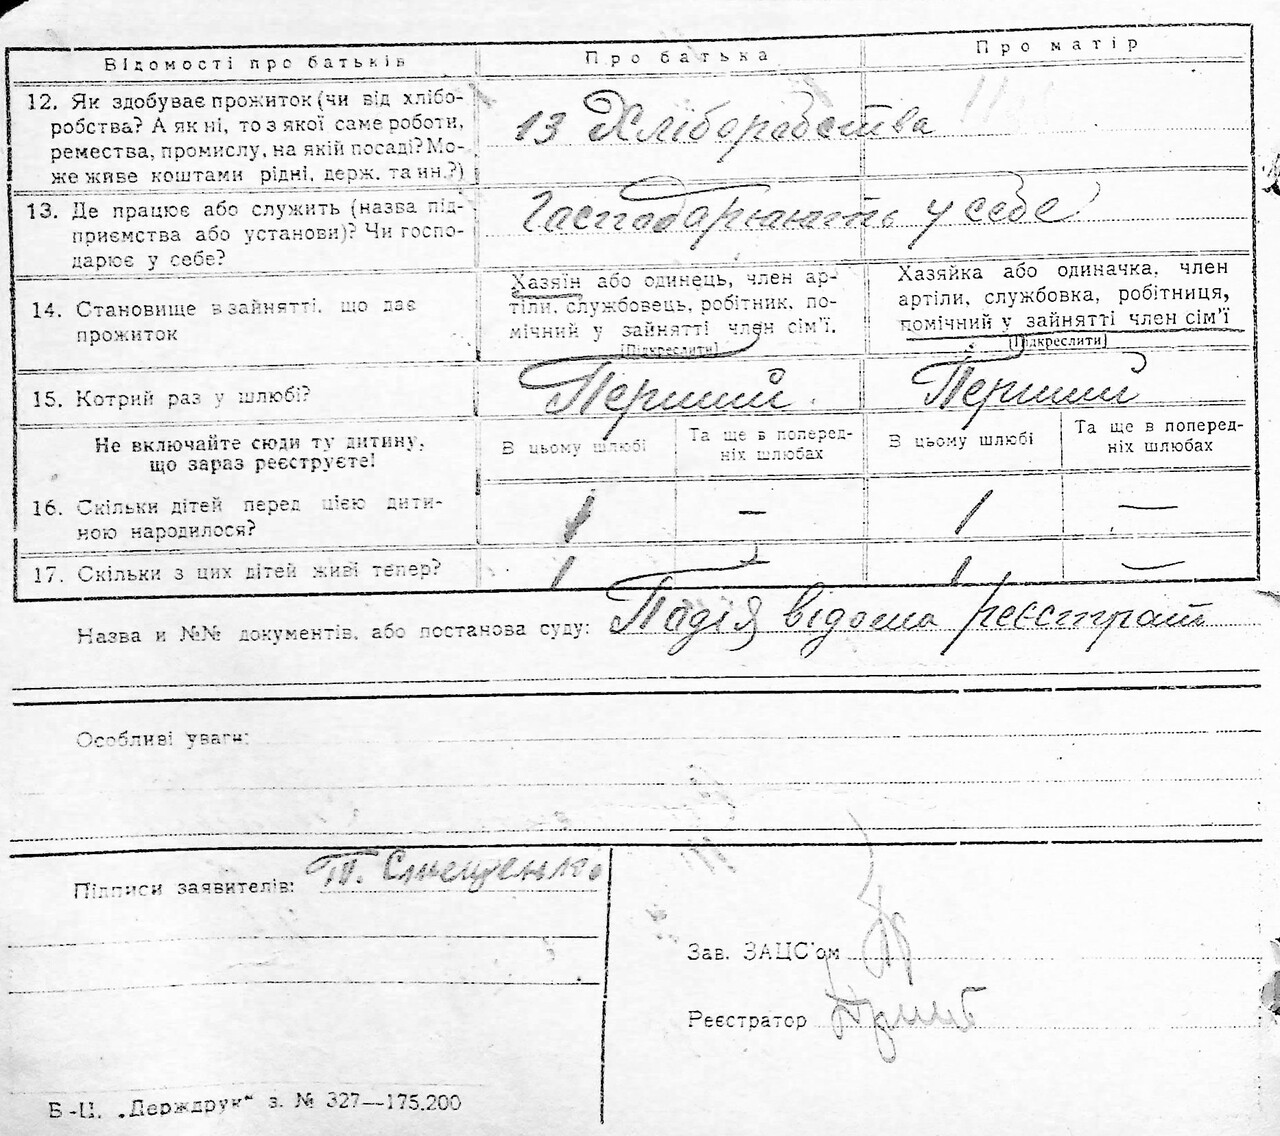 Відомості про батьків
Про батька
Про матір
12. Як здобуває прожиток (чи від хлібо-
робства? А як ні, то з якої саме роботи,
ремества, промислу, на якій посаді? Мо-
же живе коштами рідні, держ. та ин.?)
13 Хліборобства
13. Де працює або служить (назва під-
приємства або установи)? Чи госпо-
дарює у себе?
Господарюють у себе
14. Становище в зайнятті, що дає
прожиток
Хазяїн або одинець, член ар-
тіли, службовець, робітник, по-
мічний у зайнятті член сім'ї.
(Підкреслити)
Хазяйка або одиначка, член
артіли, службовка, робітниця,
помічний у зайнятті член сім'ї
(Підкреслити)
15. Котрий раз у шлюбі?
Перший
Перший
Не включайте сюди ту дитину,
що зараз реєструєте!
В цьому шлюбі
Та ще в поперед-
ніх шлюбах
В цьому шлюбі
Та ще в поперед-
ніх шлюбах
16. Скільки дітей перед цією дити-
ною народилося?
1 — 1 —
17. Скільки з цих дітей живі тепер?
1 — 1 —
Назва и №№ документів, або постанова суду: Подія відома реєстрат
Особливі уваги:
Підписи заявителів: П.
Зав. ЗАЦС'ом
Реєстратор
Б-Ц. „Держдрук" з. № 327—175.200